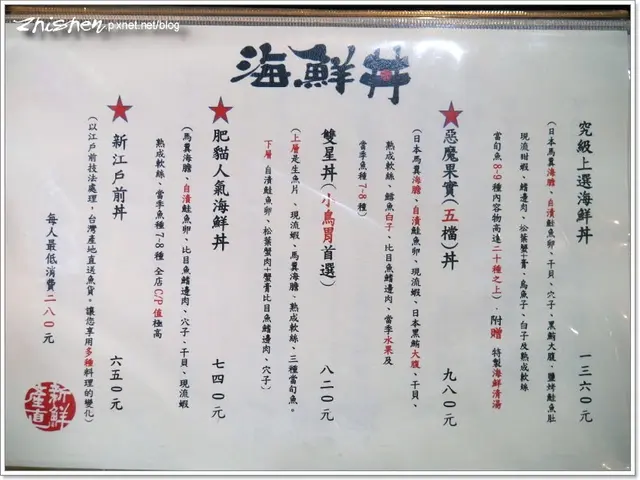 zhishen.pixnet.net/blog
海鮮丼
究級上選海鮮丼 一三六○元
(日本馬糞海膽、自漬鮭魚卵、干貝、穴子、黑鮪大腹、鹽烤鮭魚肚
現流甜蝦、鰭邊肉、松葉蟹+膏、烏魚子、白子及熟成軟絲
當旬魚8-9種內容物高達二十種之上)．附贈 特製海鮮清湯
★惡魔果實(五檔)丼 九八○元
(日本馬糞海膽、自漬鮭魚卵、現流蝦、日本黑鮪大腹、干貝、
熟成軟絲、鱈魚白子、比目魚鰭邊肉、當季水果及
當季魚種7-8種)
雙星丼(小鳥胃首選) 八二○元
(上層是生魚片、現流蝦、馬糞海膽、熟成軟絲、三種當旬魚。
下層 自漬鮭魚卵、松葉蟹肉+蟹膏比目魚鰭邊肉、穴子)
★肥貓人氣海鮮丼 七四○元
(馬糞海膽、自漬鮭魚卵、比目魚鰭邊肉、穴子、干貝、現流蝦
熟成軟絲、當季魚種7-8種 全店C/P值極高
★新江戶前丼 六五○元
(以江戶前技法處理，台灣產地直送魚貨。讓您享用多種料理的變化)
每人最低消費二八○元
新鮮
產直